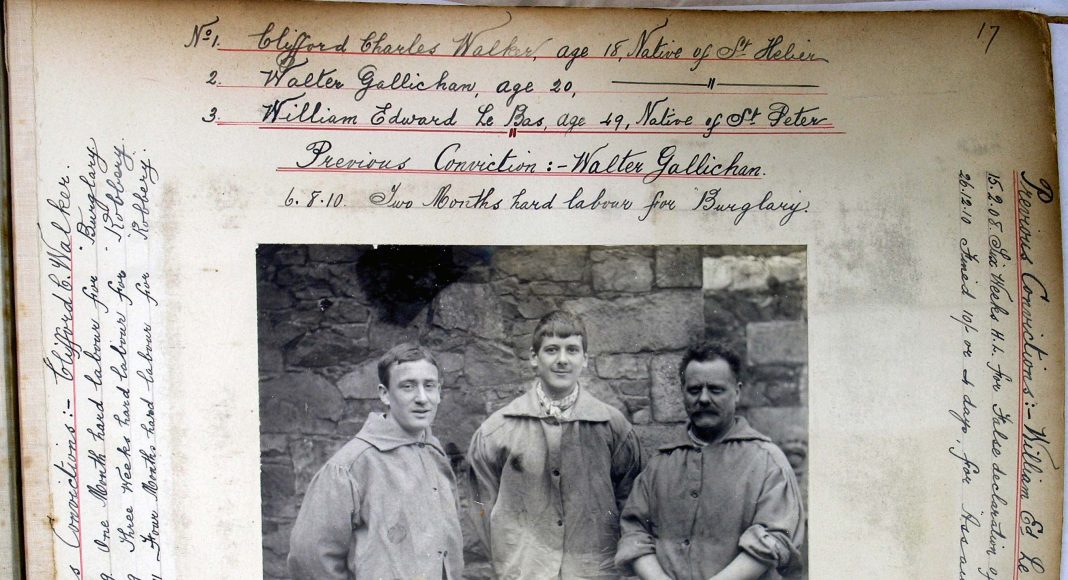 17
No 1. Clifford Charles Walker, age 18, Native of St Helier
2. Walter Gallichan, age 20, ——〃——
3. William Edward Le Bas, age 49, Native of St Peter
Previous Conviction :- Walter Gallichan.
6.8.10. Two Months hard labour for Burglary.
Convictions :- Clifford C. Walker.
One Month hard labour for Burglary
Three Weeks hard labour for Robbery.
Four Months hard labour for Robbery.
Previous Convictions :- William Ed Le
15.2.08. Six Weeks H.L. for False declaration of
26.12.10 Fined 10/- or 4 days, for